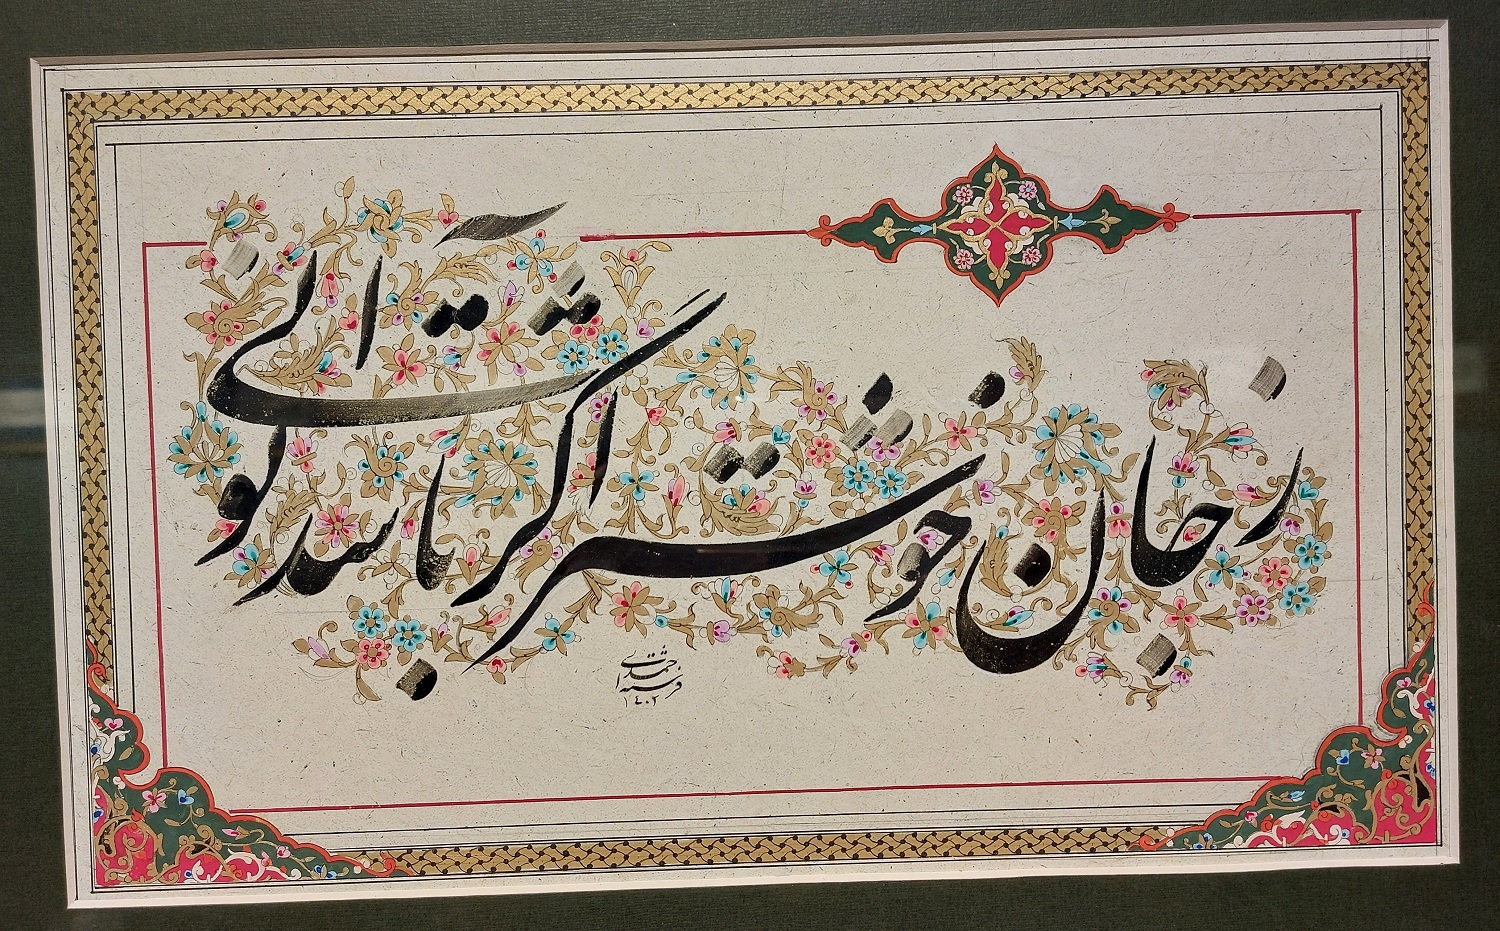 ز جان خوشتر اگر باشد تو آنی
فرشته احمدی
۱۴۰۲